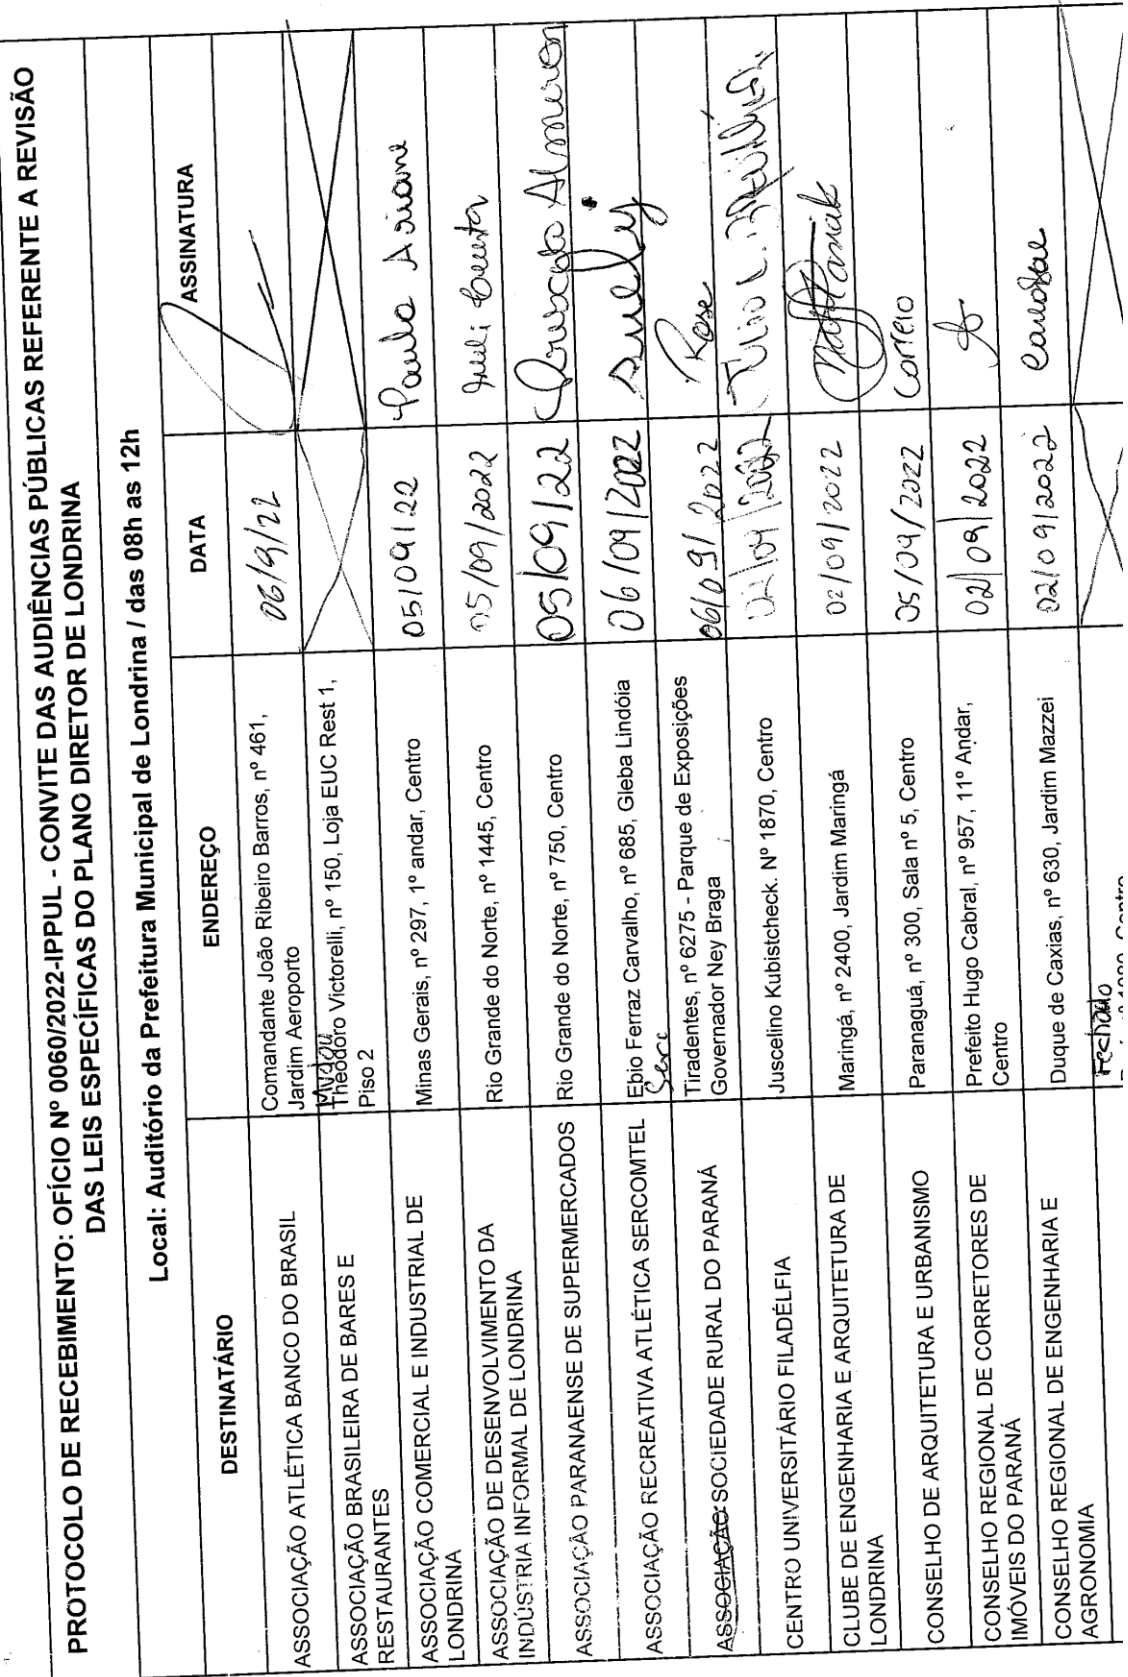 PROTOCOLO DE RECEBIMENTO: OFÍCIO Nº 0060/2022-IPPUL - CONVITE DAS AUDIÊNCIAS PÚBLICAS REFERENTE A REVISÃO
DAS LEIS ESPECÍFICAS DO PLANO DIRETOR DE LONDRINA
Local: Auditório da Prefeitura Municipal de Londrina / das 08h as 12h
DESTINATÁRIO ENDEREÇO DATA ASSINATURA
ASSOCIAÇÃO ATLÉTICA BANCO DO BRASIL
Comandante João Ribeiro Barros, nº 461,
Jardim Aeroporto
06/9/22
ASSOCIAÇÃO BRASILEIRA DE BARES E
RESTAURANTES
Mudou
Theodoro Victorelli, nº 150, Loja EUC Rest 1,
Piso 2
ASSOCIAÇÃO COMERCIAL E INDUSTRIAL DE
LONDRINA
Minas Gerais, nº 297, 1º andar, Centro
05/09/22
Paula Ariane
ASSOCIAÇÃO DE DESENVOLVIMENTO DA
INDÚSTRIA INFORMAL DE LONDRINA
Rio Grande do Norte, nº 1445, Centro
05/09/2022
ASSOCIAÇÃO PARANAENSE DE SUPERMERCADOS
Rio Grande do Norte, nº 750, Centro
05/09/22
ASSOCIAÇÃO RECREATIVA ATLÉTICA SERCOMTEL
Ebio Ferraz Carvalho, nº 685, Gleba Lindóia
06/09/2022
Suely
ASSOCIAÇÃO SOCIEDADE RURAL DO PARANÁ
Tiradentes, nº 6275 - Parque de Exposições
Governador Ney Braga
06/09/2022
Rose
CENTRO UNIVERSITÁRIO FILADÉLFIA
Juscelino Kubistcheck. Nº 1870, Centro
02/09/2022
CLUBE DE ENGENHARIA E ARQUITETURA DE
LONDRINA
Maringá, nº 2400, Jardim Maringá
02/09/2022
CONSELHO DE ARQUITETURA E URBANISMO
Paranaguá, nº 300, Sala nº 5, Centro
05/09/2022
Correio
CONSELHO REGIONAL DE CORRETORES DE
IMÓVEIS DO PARANÁ
Prefeito Hugo Cabral, nº 957, 11º Andar,
Centro
02/09/2022
CONSELHO REGIONAL DE ENGENHARIA E
AGRONOMIA
Duque de Caxias, nº 630, Jardim Mazzei
02/09/2022
Fechado
Centro